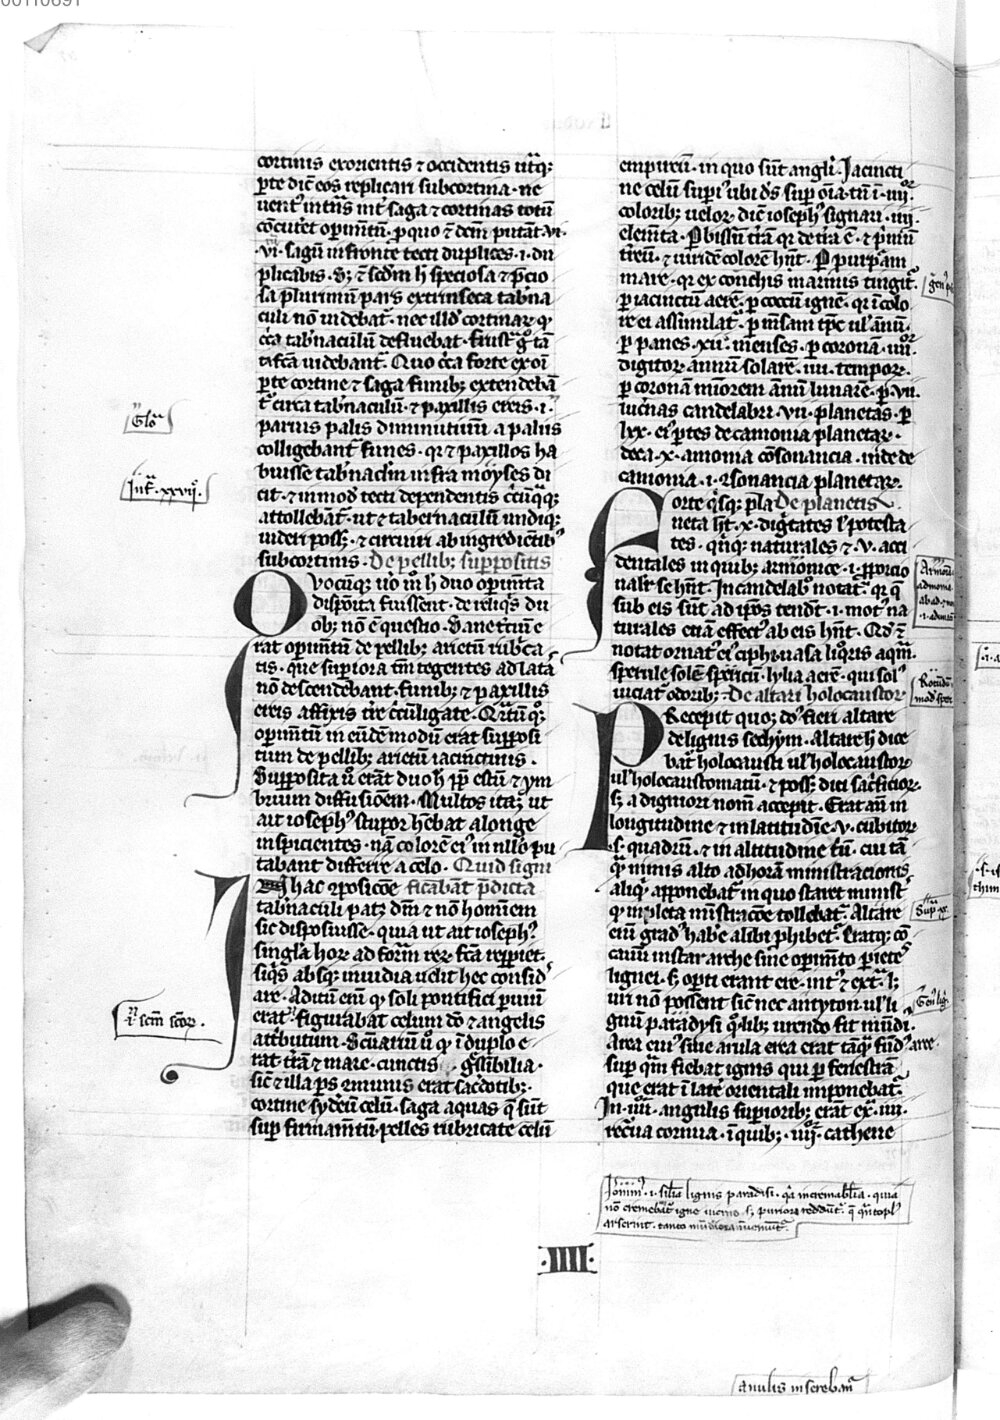 00110691
cortinis ex orientis ⁊ occidentis utᷓq;
ꝑte dic̄t eos replicari sub cortina · ne
uent᷒ int̾ns int̾ saga ⁊ cortinas totū
ꝯcuteret opim̄tū · ꝑ quo ⁊ dem putāt · vi ·
· vi · sagū in fronte tecti duplices · i · du
plicabis · S; ⁊ sc̄dm h̾ speciosa ⁊ p̄cio
sa plurimū pars extrinseca tab̾na
culi nō uidebat᷑ · nec illd̾ cortinaꝝ ꝙ
c̾ca tab̾naculū defluebat · frustᷓ g̊ tā
uidebant᷑ · Quo c̾ca forte ex oī
ꝑte cortine ⁊ saga funib; extendebā
t᷑ circa tab̾naculū · ⁊ paxillis ereis · i ·
paruis palis diminutiuū a palus
colligebant᷑ funes · qr ⁊ paxillos ha
buisse tab̾naclm infra moyses di
cit · ⁊ in mod̾ tecti dependentis
attollebāt᷑ · ut ⁊ tabernaculū undiq;
uideri poss; · ⁊ circuiri ab ingredientib᷒
sub cortinis · De pellib; suppositis
Quocūq; uō m̄ h̾ duo opim̄ta
disposita fuissent · de reliq̾s du
ob; nō ē questio · Sane t̾ciū e
rat opim̄tū de pellib; arietū rub̾ca
tis · que superiora tm̄ tegentes ad lata
nō descendebant · funib; ⁊ paxillis
ereis affixis
opim̄tū in eūdē modū erat supposi
tum de pellib; arietū iacinctinis ·
Supposita ū erāt duo h̾ ꝓp̄ estū ⁊ ym
brium diffusionem · Multos itaq; ut
ait ioseph᷒ stupor h̾ebat a longe
inspicientes · nā colore ei᷒ in nllo pu
tabant differre a celo · Quid signi
In hac ꝯposic̄oe ficabāt p̄dicta
tab̾naculi patꝫ dm̄ ⁊ nō hominem
sic disposuisse · quia ut ait ioseph᷒
singᷓla hoꝝ ad formā reꝝ fc̄a repp̄iet ·
siq̾s absq; inuidia uelit hec consid̾
are · Aditū eni ꝙ soli pontifici puiū
erat · figurabat celum dō ⁊ angelis
attributum · Scuariū ū ꝙ ī duplo e
rat · tr̄a ⁊ mare · cunctis gressibilia ·
sic ⁊ illa ꝑs ꝯmunis erat sac̾dotib; ·
cortine sydereū celū · saga aquas q̄ sūt
suꝑ firmam̄tū · pelles rubricate celū
Glo᷑
Infᷓ · xxvij ·
i · sc̄m sc̄oꝝ ·
empireū · in quo sūt angli · Iacincti
ne celū suꝑi᷒ ubi ds̄ suꝑ oīa · tū ī · iiij ·
colorib; ueloꝝ dic̄t ioseph᷒ signari · iiij ·
elem̄ta · P bissū tr̄ā qr de tr̄a ē · ⁊ p̾mū
tr̄eū · ⁊ uiridē colorē hn̄t · P purpᷓam
mare · qr ex conchis marinis tingit᷑ ·
ꝑ iacinctū aerē · ꝑ coccū ignē · qr ī colo
re ei assimilat᷑ · ꝑ m̄sam tp̄e ul̾ ānū ·
ꝑ panes · xii · menses · ꝑ coronā · iiij ·
digitoꝝ annū solarē · iiij · tempoꝝ ·
ꝑ coronā minorem ānū lunarē · ꝑ · vii ·
luc̾nas candelabri · vii · planetas · ꝑ
lxx · ei᷒ ꝑtes decamonia planetaꝝ ·
deca · x · amonia cōsonancia · inde de
camonia · i · ꝯsonancia planetaꝝ ·
Sorte q̾sq; pla De planetis
neta h̾t · x · dignitates ł potesta
tes · qinq; naturales ⁊ · v · acci
dentales in quib; armonice · i · ꝓporcio
nalr̄ se hn̄t · In candelab̾ notat᷑ · qr q̄
sub eis sūt ad ip̄os tendūt · i · mot᷒ na
turales etiā effect᷒ ab eis hn̄t · Qd̾ ⁊
notat ornat᷒ ei᷒ ciphi · uasa liq̾ris aqm̄ ·
sperule solē spericū · lylia aerē · qui sol
uiciat᷒ odorib; · De altari holocaustoꝝ
Precepit quoq; do᷒ fieri altare
de lignis sechym · Altare h̾ dice
bat᷑ holocausti ul̾ holocaustoꝝ
ul̾ holocaustomatū · ⁊ poss; dici sac̾ficioꝝ ·
s; a digniori nom̄ accepit · Erat au̅ in
longitudine ⁊ in latitudīe · v · cubitoꝝ
· s · quadrū · ⁊ in altitudine t̾ū · cui tā
ꝙᷓ nimis alto ad horā ministracionis
aliq̾ apponebat᷑ in quo staret minist᷒
ꝙ impleta m̄stracōe tollebat᷑ · Altare
eni grad᷒ hab̾e alibi ꝓhibet᷑ · Eratq; cō
cauū instar arche sine opim̄to parietes
lignei · s · op̾ti erant ere · int᷒ ⁊ ext̾ · l;
uri nō possent sic nec antyton · ul̾ li
gnū paradysi q̾ · lib; urendo fit mūdi ·
Area ei᷒ siue arula erea erat tāꝙᷓ fūd᷒ aree ·
suꝑ qm̄ fiebat ignis qui ꝑ fenestrā
que erat ī late᷒ orientali imponebat᷑ ·
In · iiij · angulis suꝑiorib; erāt ex̄ · iiij ·
recurua cornua · ī quib; · iiij · cathene
· i · silia lignis paradisi · qa incremabl̾ia · quia
nō cremebāt᷑ igne iuncto · s; puriora reddūt᷑ ·
arserint · tanto mūdiora inueniūt᷑ ·
· IIII ·
anulis inserebant᷑